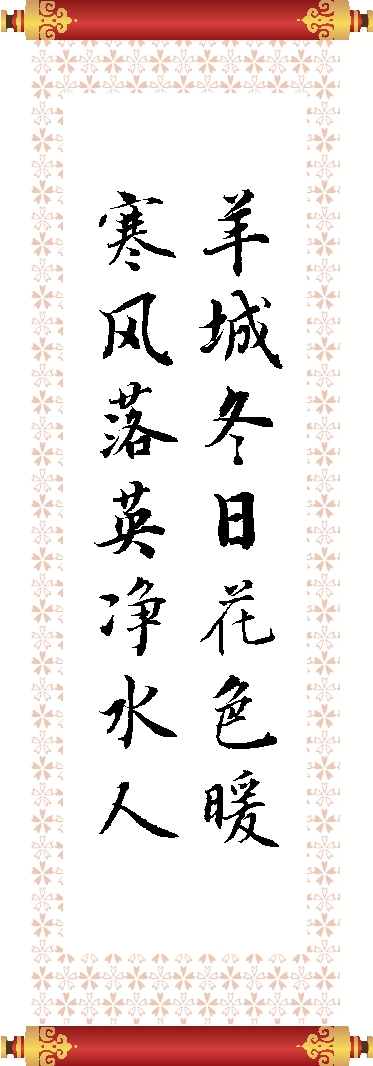 羊城冬日花色暖
寒风落英净水人